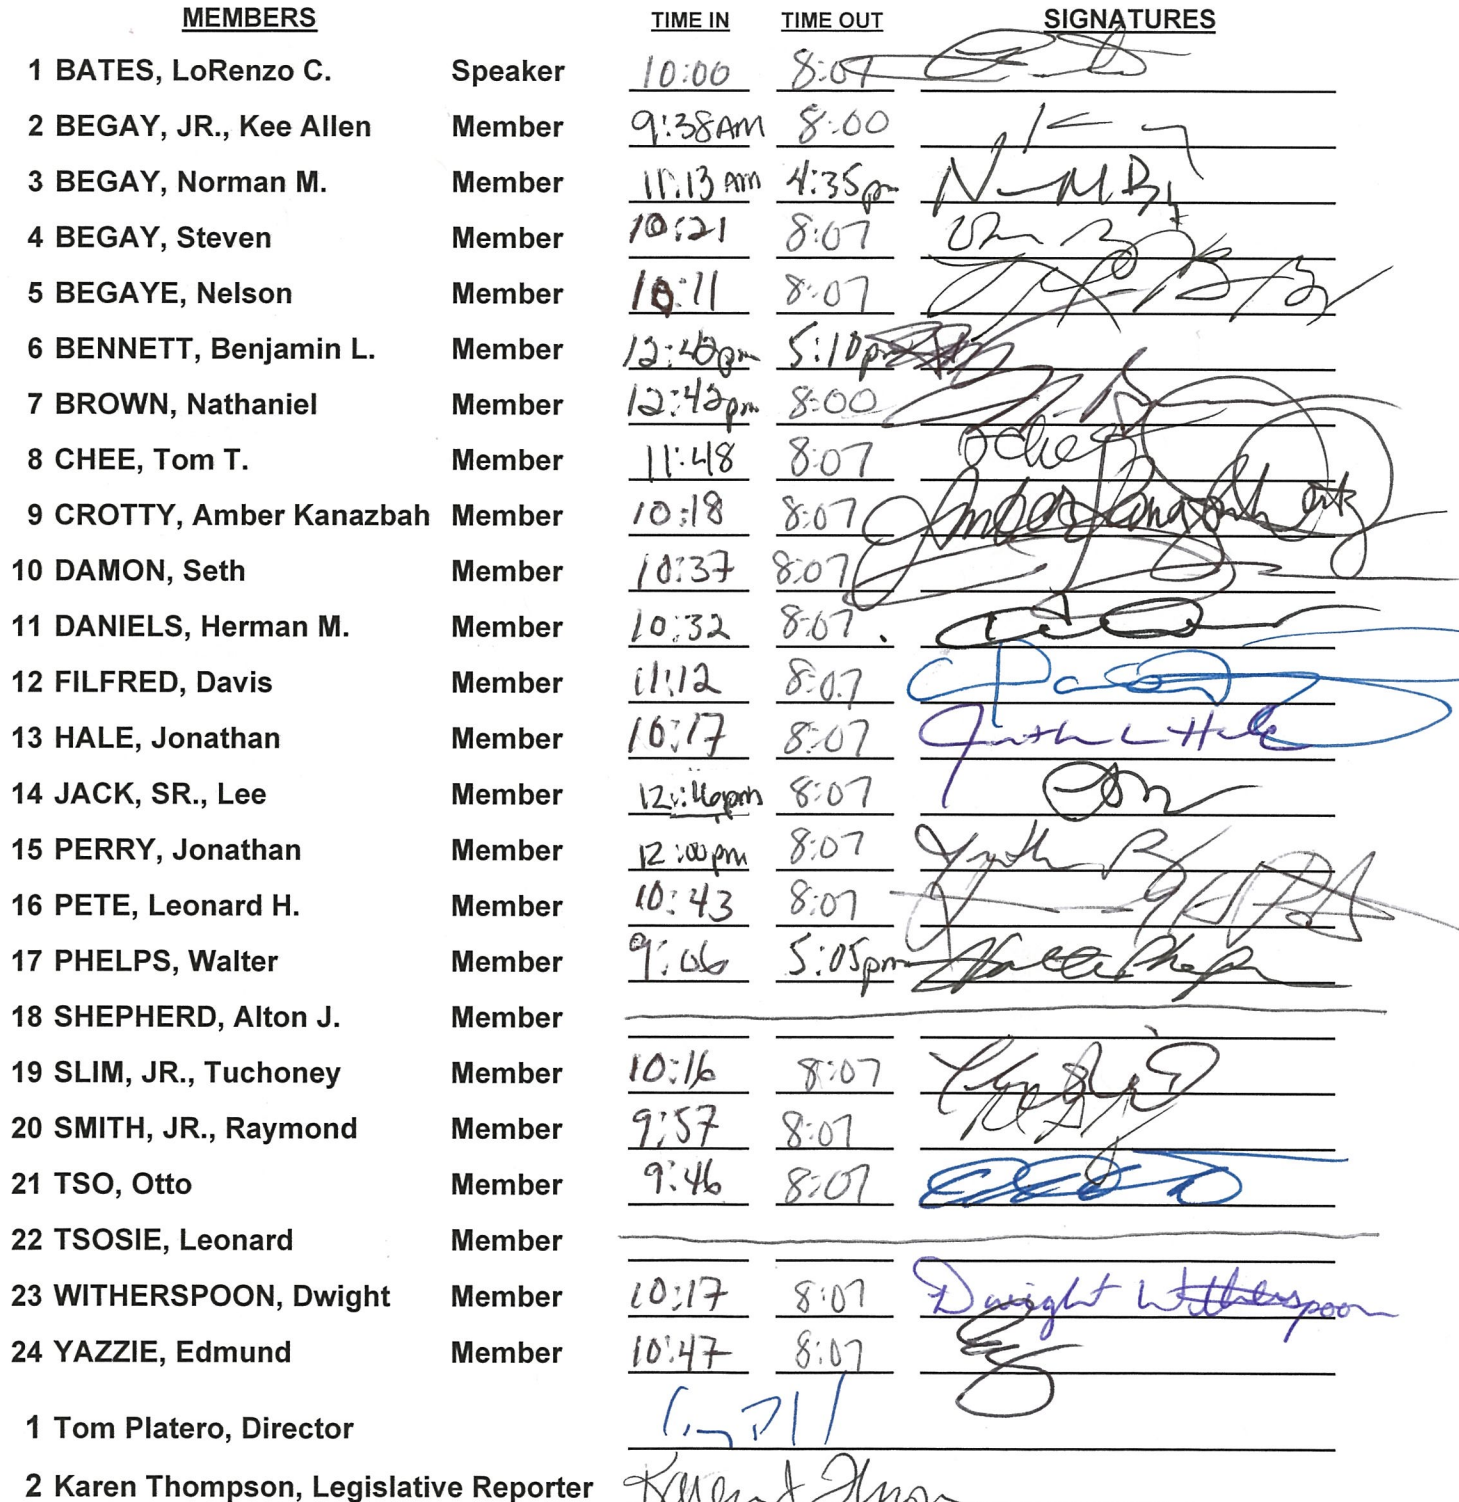 MEMBERS TIME IN TIME OUT SIGNATURES
1 BATES, LoRenzo C. Speaker 10:00 8:07
2 BEGAY, JR., Kee Allen Member 9:38AM 8:00
3 BEGAY, Norman M. Member 11:13 AM 4:35pm
4 BEGAY, Steven Member 10:21 8:07
5 BEGAYE, Nelson Member 10:11 8:07
6 BENNETT, Benjamin L. Member 5:10pm
7 BROWN, Nathaniel Member 12:42pm 8:00
8 CHEE, Tom T. Member 11:48 8:07
9 CROTTY, Amber Kanazbah Member 10:18 8:07
10 DAMON, Seth Member 10:37 8:07
11 DANIELS, Herman M. Member 10:32 8:07
12 FILFRED, Davis Member 11:12 8:07
13 HALE, Jonathan Member 10:17 8:07
14 JACK, SR., Lee Member 8:07
15 PERRY, Jonathan Member 12:00pm 8:07
16 PETE, Leonard H. Member 10:43 8:07
17 PHELPS, Walter Member 9:06 5:05pm
18 SHEPHERD, Alton J. Member
19 SLIM, JR., Tuchoney Member 10:16 8:07
20 SMITH, JR., Raymond Member 9:57 8:07
21 TSO, Otto Member 9:46 8:07
22 TSOSIE, Leonard Member
23 WITHERSPOON, Dwight Member 10:17 8:07 Dwight Witherspoon
24 YAZZIE, Edmund Member 10:47 8:07
1 Tom Platero, Director
2 Karen Thompson, Legislative Reporter